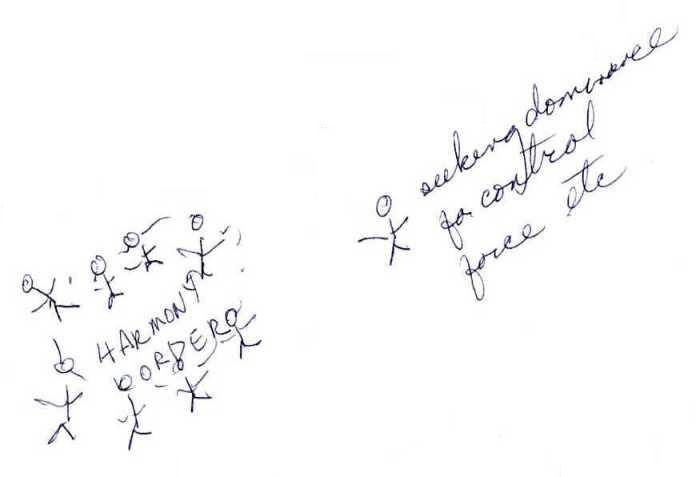 seeking dominance
for control
force etc
HARMONY